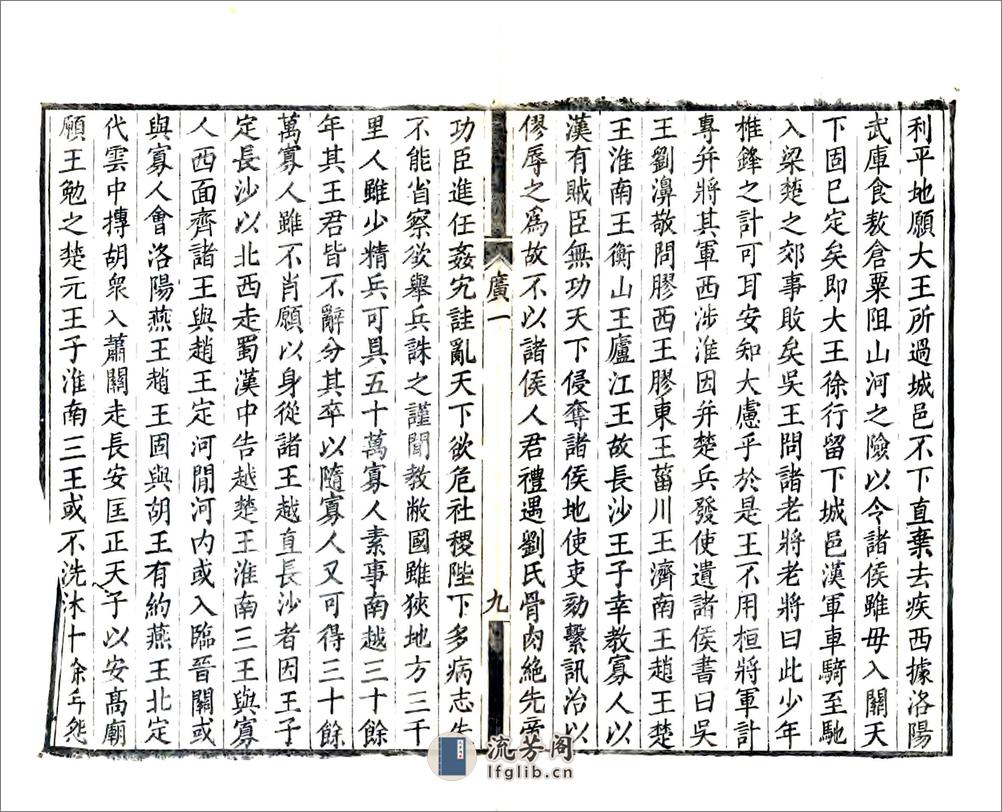 利平地願大王所過城邑不下直棄去疾西據洛陽
武庫食敖倉粟阻山河之險以令諸侯雖毋入關天
下固已定矣即大王徐行留下城邑漢軍車騎至馳
入梁楚之郊事敗矣吳王問諸老將老將曰此少年
椎鋒之計可耳安知大慮乎於是王不用桓將軍計
專并將其軍西涉淮因并楚兵發使遺諸侯書曰吳
王劉濞敬問膠西王膠東王菑川王濟南王趙王楚
王淮南王衡山王廬江王故長沙王子幸教寡人以
漢有賊臣無功天下侵奪諸侯地使吏劾繫訊治以
僇辱之爲故不以諸侯人君禮遇劉氏骨肉絶先帝
廣一
九
功臣進任姦宄詿亂天下欲危社稷陛下多病志失
不能省察欲舉兵誅之謹聞教敝國雖狹地方三千
里人雖少精兵可具五十萬寡人素事南越三十餘
年其王君皆不辭分其卒以隨寡人又可得三十餘
萬寡人雖不肖願以身從諸王越直長沙者因王子
定長沙以北西走蜀漢中告越楚王淮南三王與寡
人西面齊諸王與趙王定河閒河内或入臨晉關或
與寡人會洛陽燕王趙王固與胡王有約燕王北定
代雲中摶胡衆入蕭關走長安匡正天子以安高廟
願王勉之楚元王子淮南三王或不洗沐十余年怨
流芳阁
lfglib.cn